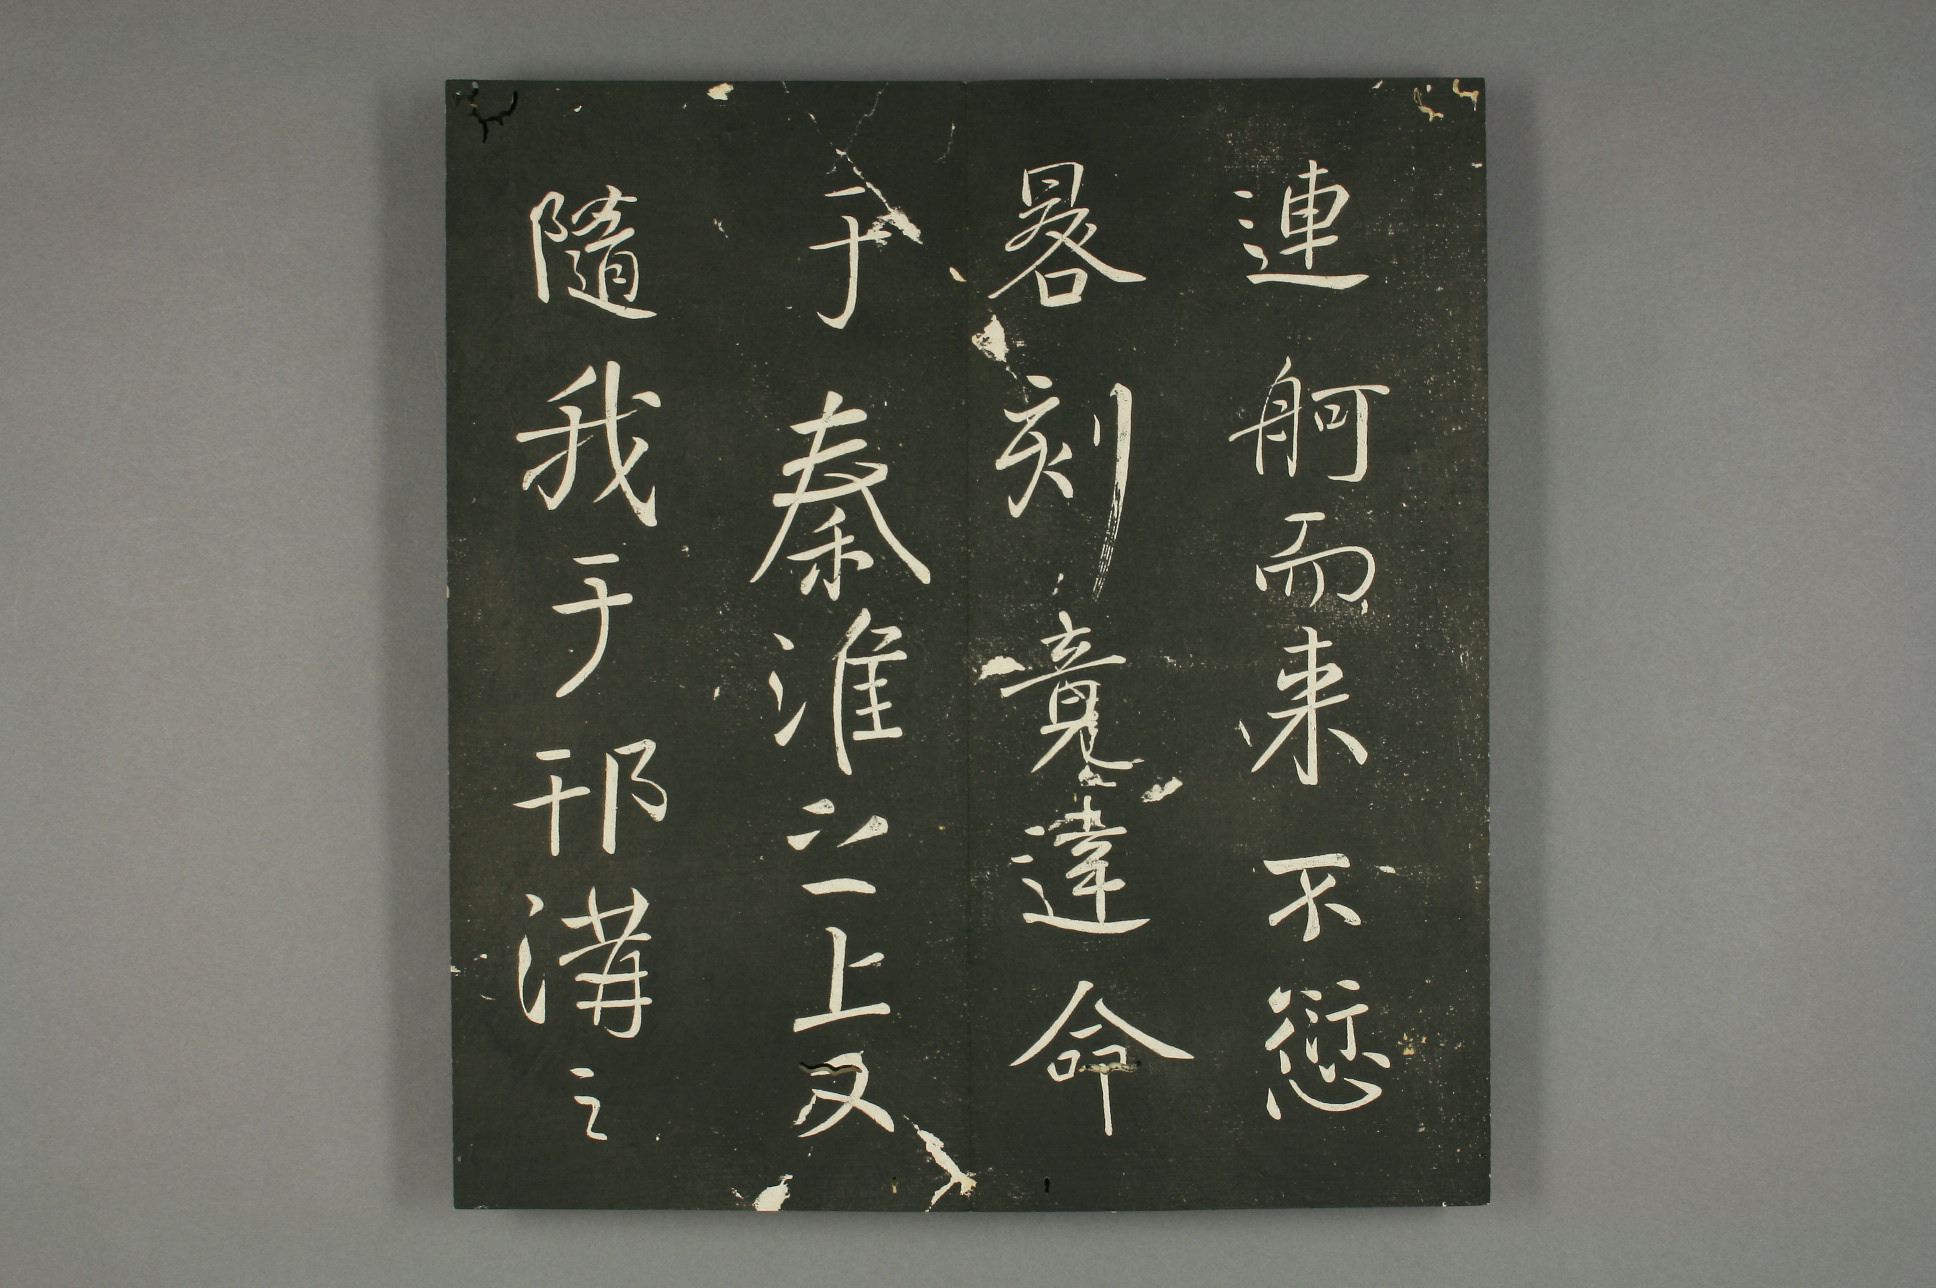 連舸而来不愆
晷刻竟達命
于秦淮之上又
隨我于邗溝之